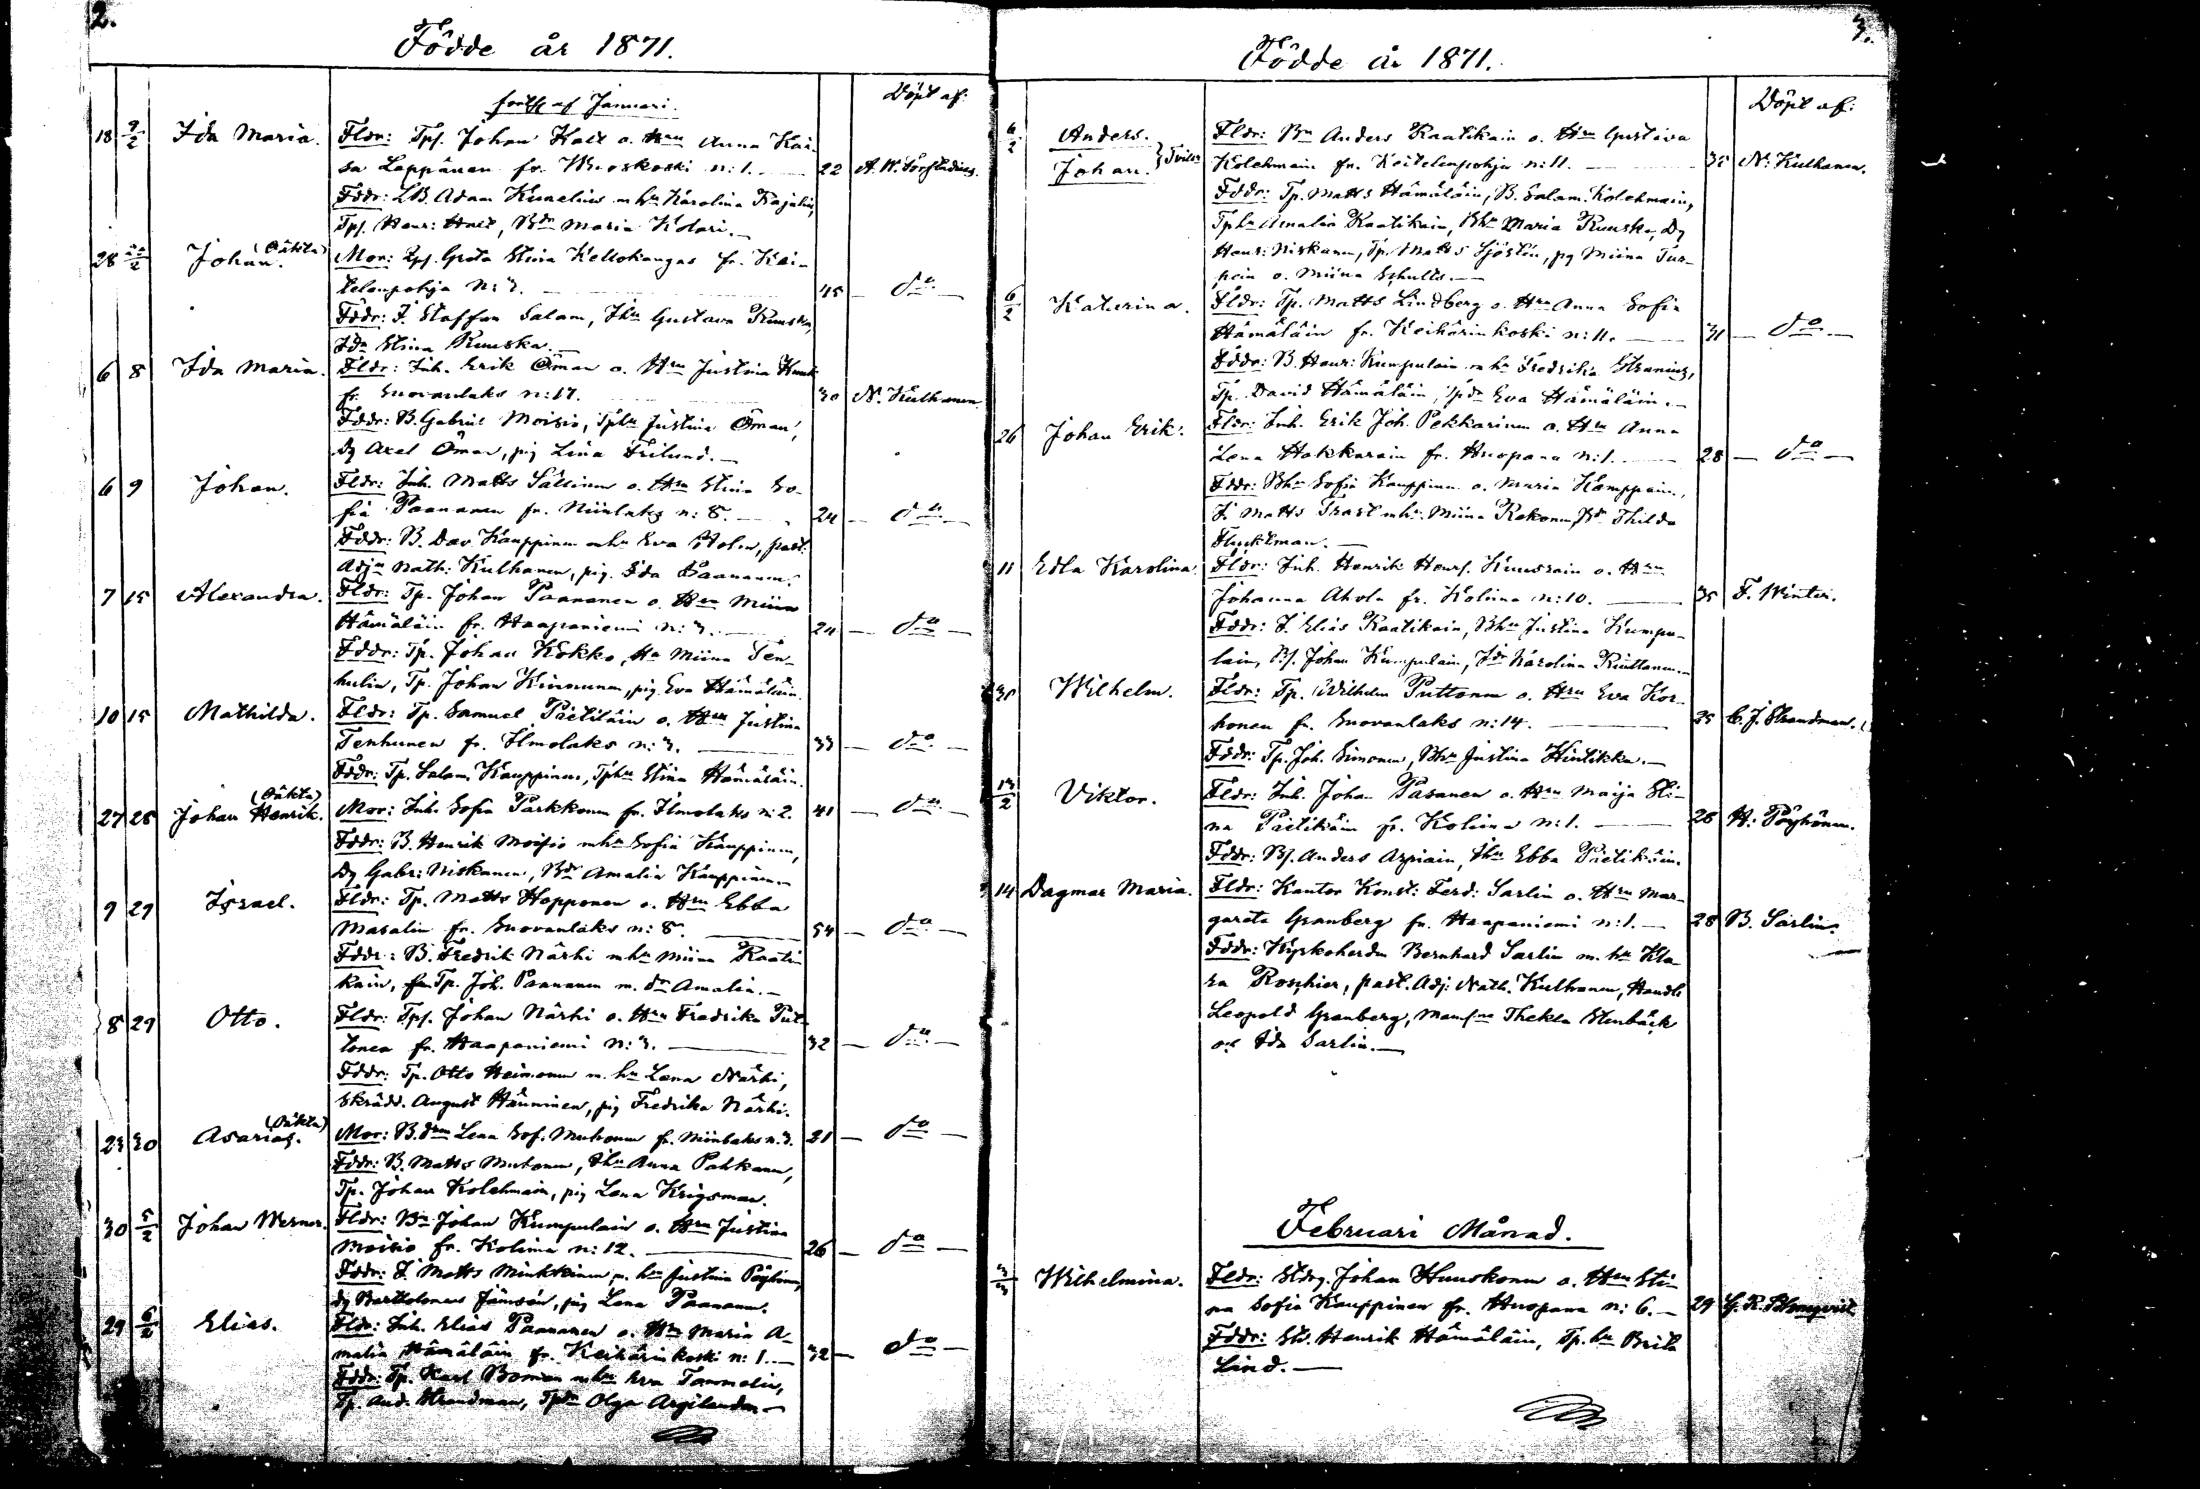 2.
Födde år 1871.
forts. af Januari.
Döpt af:
18 9/2 Ida Maria. Fldr: Tpf. Johan Halt o. Hru Anna Kai-
sa Leppänen fr. Wuoskoski n:1. 22 A. W. Forstadius.
Fddr: LB. Adam Kunelius m hu Karolina Rajalin,
Tpf. Henr: Halt, Bdr Maria Kolari.
28 /2 Johan. (Oäkta) Mor: Tpf. Greta Stina Kellokangas fr. Kei-
telenpohja N:3. 45 — do —
Fddr: I. Staffan Salam, Ihu Gustava Ruuska,
Idr Stina Ruuska.
6 8 Ida Maria. Fldr: Inh. Erik Öman o. Hru Justina
fr. Suovanlaks n:17. 30 N. Kulhanen
Fddr: B. Gabriel Moisio, Tphu Justina Öman,
Dg Axel Öman, pig Lina Frilund.
6 9 Johan. Fldr: Inh. Matts Sällinen o. Hru Stina So-
fia Paananen fr. Niinilaks n:8. 24 — do —
Fddr: B. Dav. Kauppinen mhu Eva Holm, past.
Adjn Nath: Kulhanen, pig. Ida Paananen.
7 15 Alexandra. Fldr: Tp. Johan Paananen o. Hru Miina
Hämäläin fr. Haapaniemi n:3. 24 — do —
Fddr: Tp. Johan Kokko, hu Miina Ten-
hulin, Tp. Johan Kinnunen, pig Eva Hämäläin.
10 15 Mathilda. Fldr: Tp. Samuel Pietiläin o. Hru Justina
Tenhunen fr. Ilmolaks n:3. 33 — do —
Fddr: Tp. Salam. Kauppinen, Tphu Stina Hämäläin.
27 28 Johan Henrik. (Oäkta) Mor: Inh. Sofia Parkkonen fr. Ilmolaks n:2. 41 — do —
Fddr: B. Henrik Moisio mhu Sofia Kauppinen,
Dg Gabr: Niskanen, Bdr Amalia Kauppinen.
9 29 Israel. Fldr: Tp. Matts Hopponen o. Hru Ebba
Masalin fr. Suovanlaks n:8. 54 — do —
Fddr: B. Fredrik Närhi mhu Miina Raati-
kain, Tp. Joh. Paananen m. dr Amalia.
8 29 Otto. Fldr: Tpf. Johan Närhi o. Hru Fredrika Put-
tonen fr. Haapaniemi N:3. 32 — do —
Fddr: Tp. Otto Heimonen m. hu Lena Närhi,
Skrädd. August Hänninen, pig Fredrika Närhi.
23 30 Asarias. (Oäkta) Mor: B. drn Lena Sof. Mutonen fr. Niinilaks n:3. 21 — do —
Fddr: B. Matts Mutonen, Ihu Anna Pahkanen,
Tp. Johan Kolehmain, pig Lena Krigsman.
30 5/2 Johan Werner. Fldr: Bn Johan Kumpulain o. Hru Justina
Moisio fr. Kolima n:12. 26 — do —
Fddr: I. Matts Minkkinen m. hu Justina Pöyhönen,
Dg Bartholomeus Jämsén, pig Lena Paananen.
29 6/2 Elias. Fldr: Inh. Elias Paananen o. Hru Maria A-
malia Hämäläin fr. Keihärinkoski n:1. 32 — do —
Fddr: Tp. Karl Boman mhu Eva Tammelin,
Tp. And. Strandman, Tpdr Olga Argilander
3.
Födde år 1871.
Döpt af:
6/2 Anders. Johan. } Tvillr Fldr: Bn Anders Raatikain o. Hru Gustava
Kolehmain fr. Keitelenpohja n:11. 35 N: Kulhanen.
Fddr: Tp. Matts Hämäläin, B. Salam. Kolehmain,
Tphu Amalia Raatikain, Bhu Maria Ruuska, Dg
Henr: Niskanen, Tp. Matts Sjöstén, pg Miina Tur-
pein o. Miina Schults.
6/2 Katarina. Fldr: Tp. Matts Lindberg o. Hru Anna Sofia
Hämäläin fr. Keihärinkoski n:11. 31 — do —
Fddr: B. Henr: Kumpulain mhu Fredrika Stranius,
Tp. David Hämäläin, Tpdr Eva Hämäläin.
26 Johan Erik. Fldr: Inh. Erik Joh. Pekkarinen o. Hru Anna
Lena Hakkarain fr. Huopana n:1. 28 — do —
Fddr: Bhu Sofia Kauppinen o. Maria Kamppain,
I. Matts Trast mhu Miina Kokonen, Bdr Thilda
Flinkman.
11 Edla Karolina. Fldr: Inh. Henrik Henrs. Kuusrain o. Hru
Johanna Ahola fr. Kolima n:10. 35 F. Winter.
Fddr: I. Elias Raatikain, Bhu Justina Kumpu-
lain, Bs. Johan Kumpulain, Idr Karolina Ruuttanen.
31 Wilhelm. Fldr: Tp. Wilhelm Puttonen o. Hru Eva Kor-
honen fr. Suovanlaks n:14. 25 C. J. Strandman.
Fddr: Tp. Joh. Simonen, Bhu Justina Hintikka.
13/2 Viktor. Fldr: Inh. Johan Pasanen o. Hru Maija Sti-
na Pietikäin fr. Kolima n:1. 26 H: Pöyhönen.
Fddr: Bs. Anders Arpiain, Ihu Ebba Pietikäin.
14 Dagmar Maria. Fldr: Kantor Konst: Ferd: Sarlin o. Hru Mar-
gareta Granberg fr. Haapaniemi n:1. 28 B. Sarlin.
Fddr: Kyrkoherdn Bernhard Sarlin m. hu Kla-
ra Roschier, past. Adj: Nath. Kulhanen, Handl:
Leopold Granberg, Mamsne Thekla Stenbäck
och Ida Sarlin.
Februari Månad.
3/3 Wilhelmina. Fldr: Stdrg. Johan Huuskonen o. Hru Sti-
na Sofia Kauppinen fr. Huopana n:6. 29 G. R. Palmqvist
Fddr: St. Henrik Hämäläin, Tp. hu Brita
Lind.